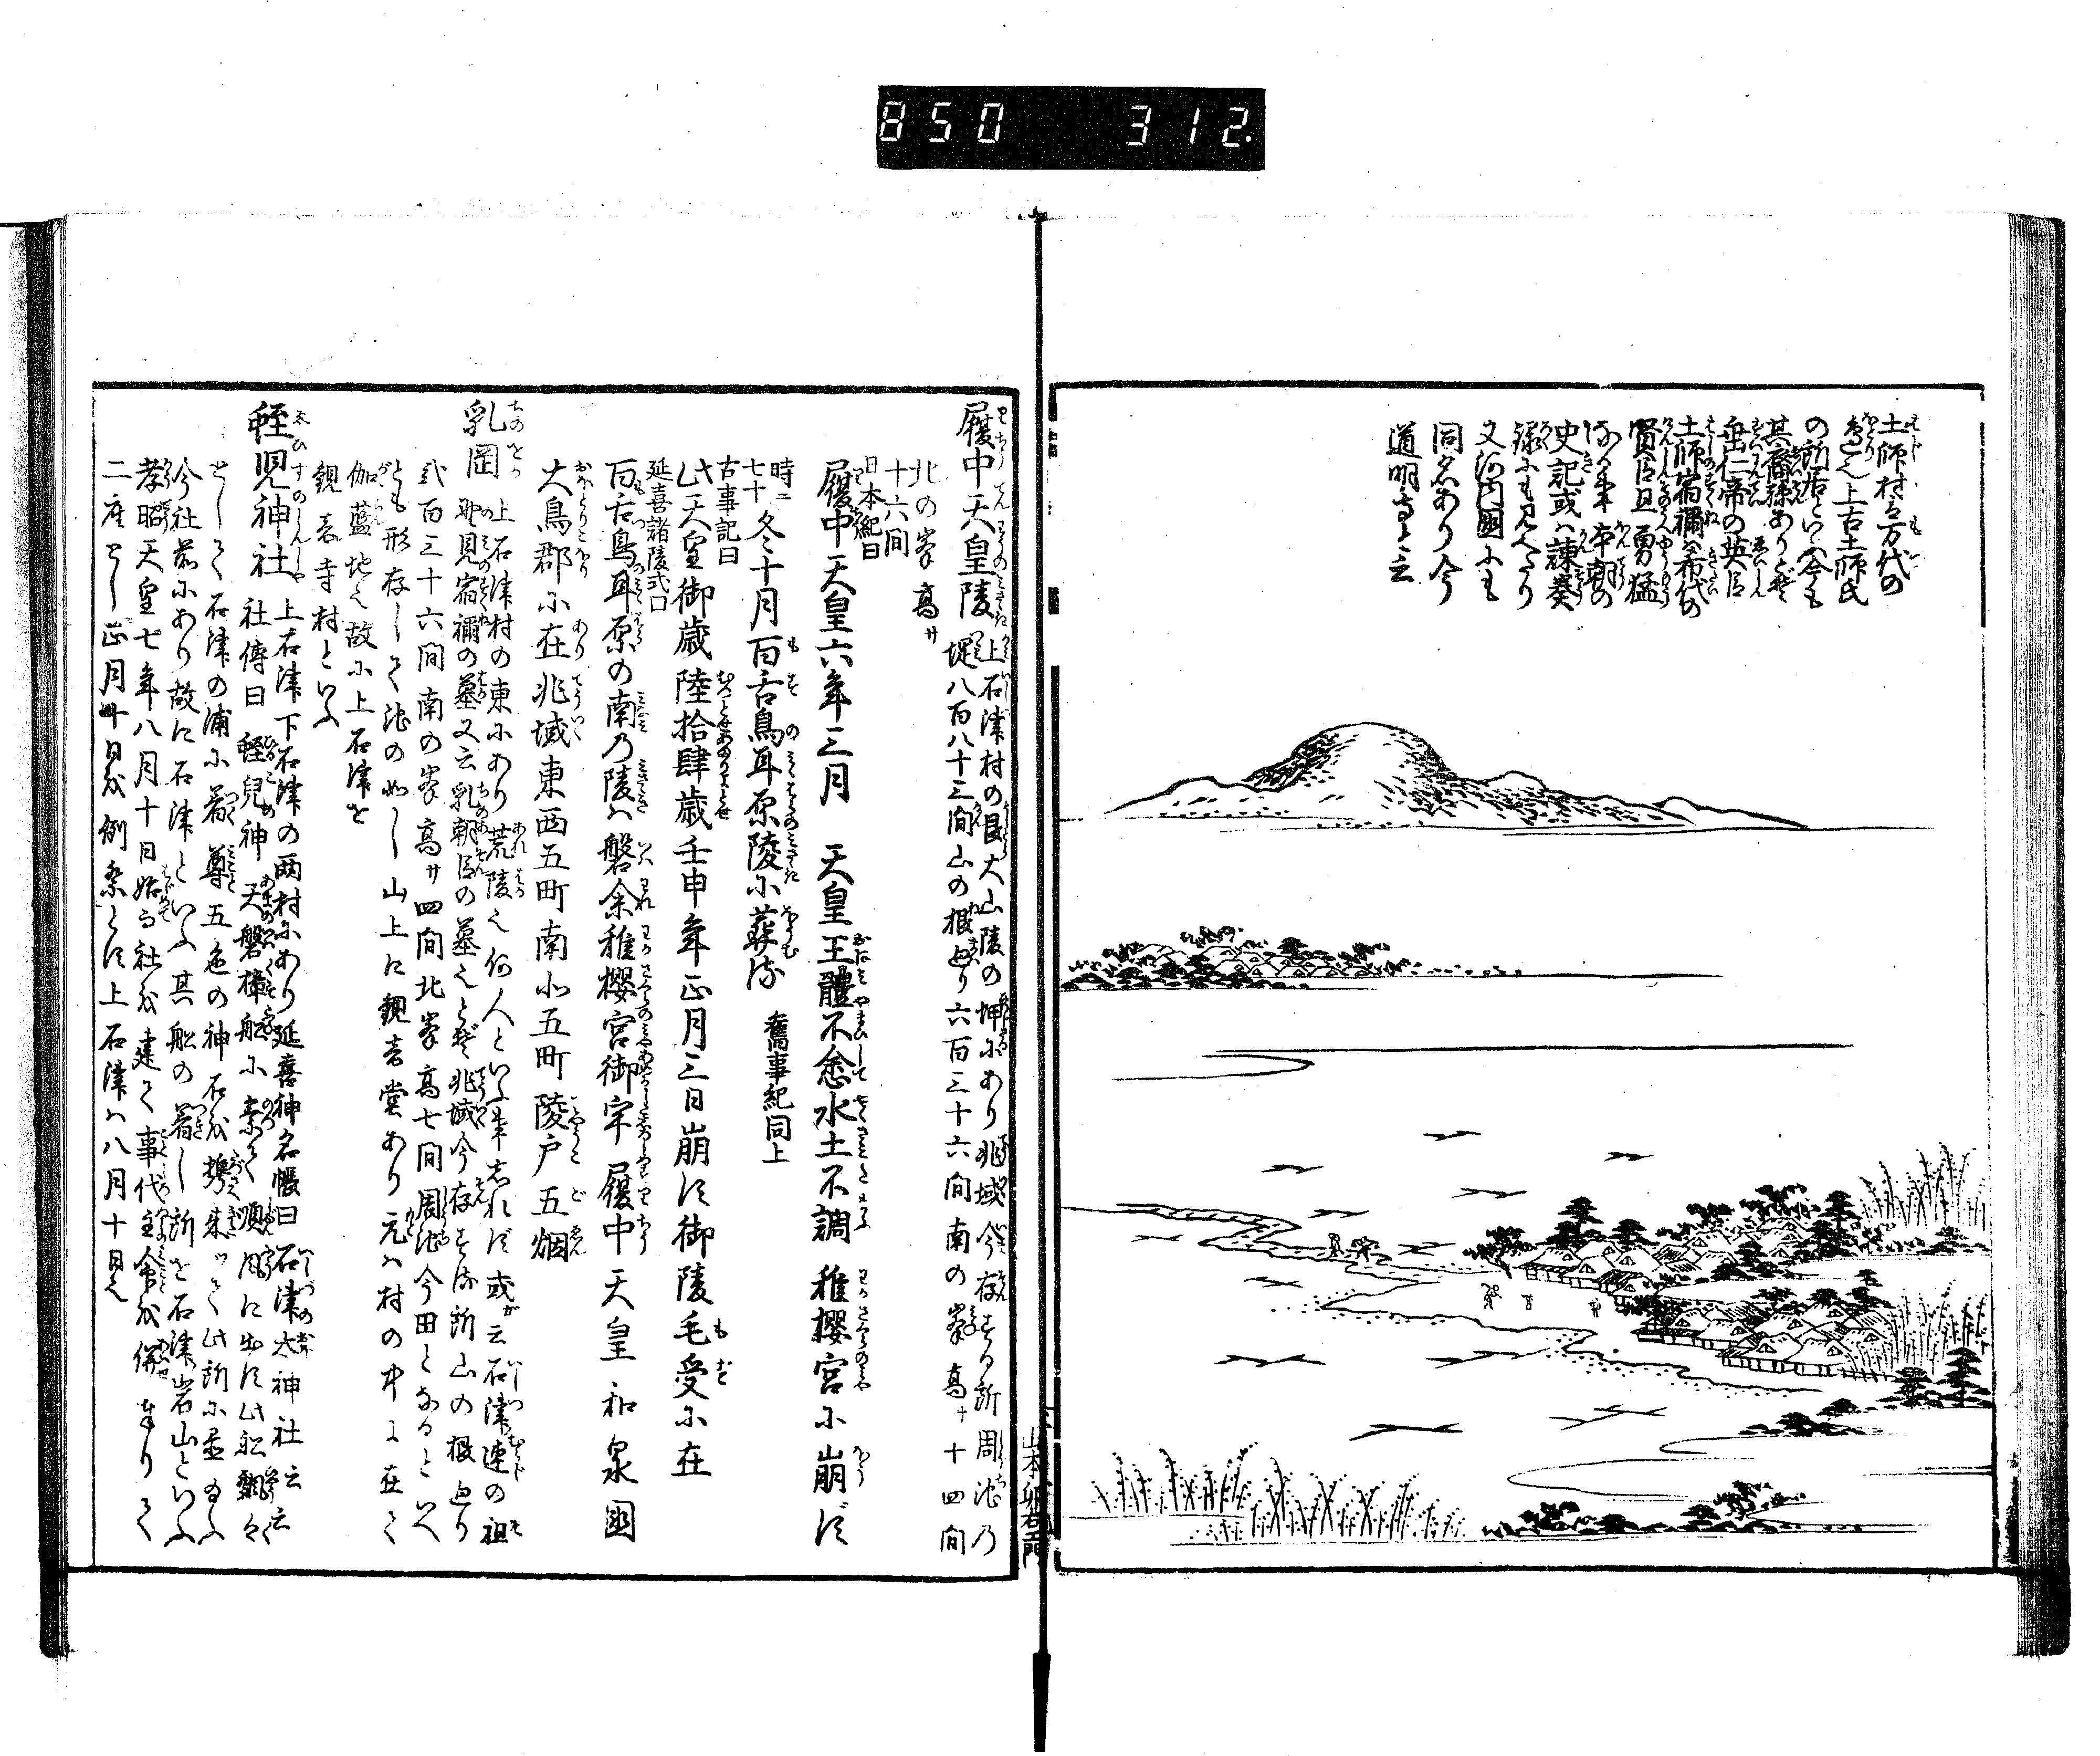 850 312.
土師村は万代の
隣也上古土師氏
の所居といふ今も
其裔孫ありとぞ
垂仁帝の英臣
土師宿禰は希代の
賢臣且勇猛
本朝の
史記或は諫奏
録にも見へたり
又河内国にも
同名あり今
道明寺と云
履中天皇陵 上石津村の艮大山陵の坤にあり兆域今存する所周池乃
堤八百八十三間山の根廻り六百三十六間南の峯高サ十四間
北の峯高サ
十六間
日本紀曰
履中天皇六年三月 天皇玉體不悆水土不調 稚櫻宮に崩ず
時ニ
七十 冬十月百舌鳥耳原陵に葬る 舊事紀同上
古事記曰
此天皇御歳陸拾肆歳壬申年正月三日崩ず御陵毛受に在
延喜諸陵式曰
百舌鳥耳原の南乃陵は磐余稚櫻宮御宇 履中天皇和泉國
大鳥郡に在兆域東西五町南北五町陵戸五烟
乳岡 上石津村の東にあり荒陵也何人といふ事しれず或が云石津連の祖
野見宿禰の墓又云乳朝臣の墓也とぞ兆域今存する所山の根廻り
弐百三十六間南の峯高サ四間北峯高七間周池今田となるといへ
とも形存して池の如し山上に観音堂あり元は村の中に在て
伽藍地也故に上石津を
観音寺村といふ
蛭児神社 上石津下石津の両村にあり延喜神名帳曰石津太神社云云
社傳曰蛭兒神天磐樟船に乗て順風に出す此船飄々
として石津の浦に着尊五色の神石を携来つて此所に置給ふ
今社前にあり故に石津といふ其船の着し所を石津岩山といふ
孝昭天皇七年八月十日始て社を建て事代主命を併まつりて
二座とし正月廿日を例祭とす上石津は八月十日也
山本卯右衛門